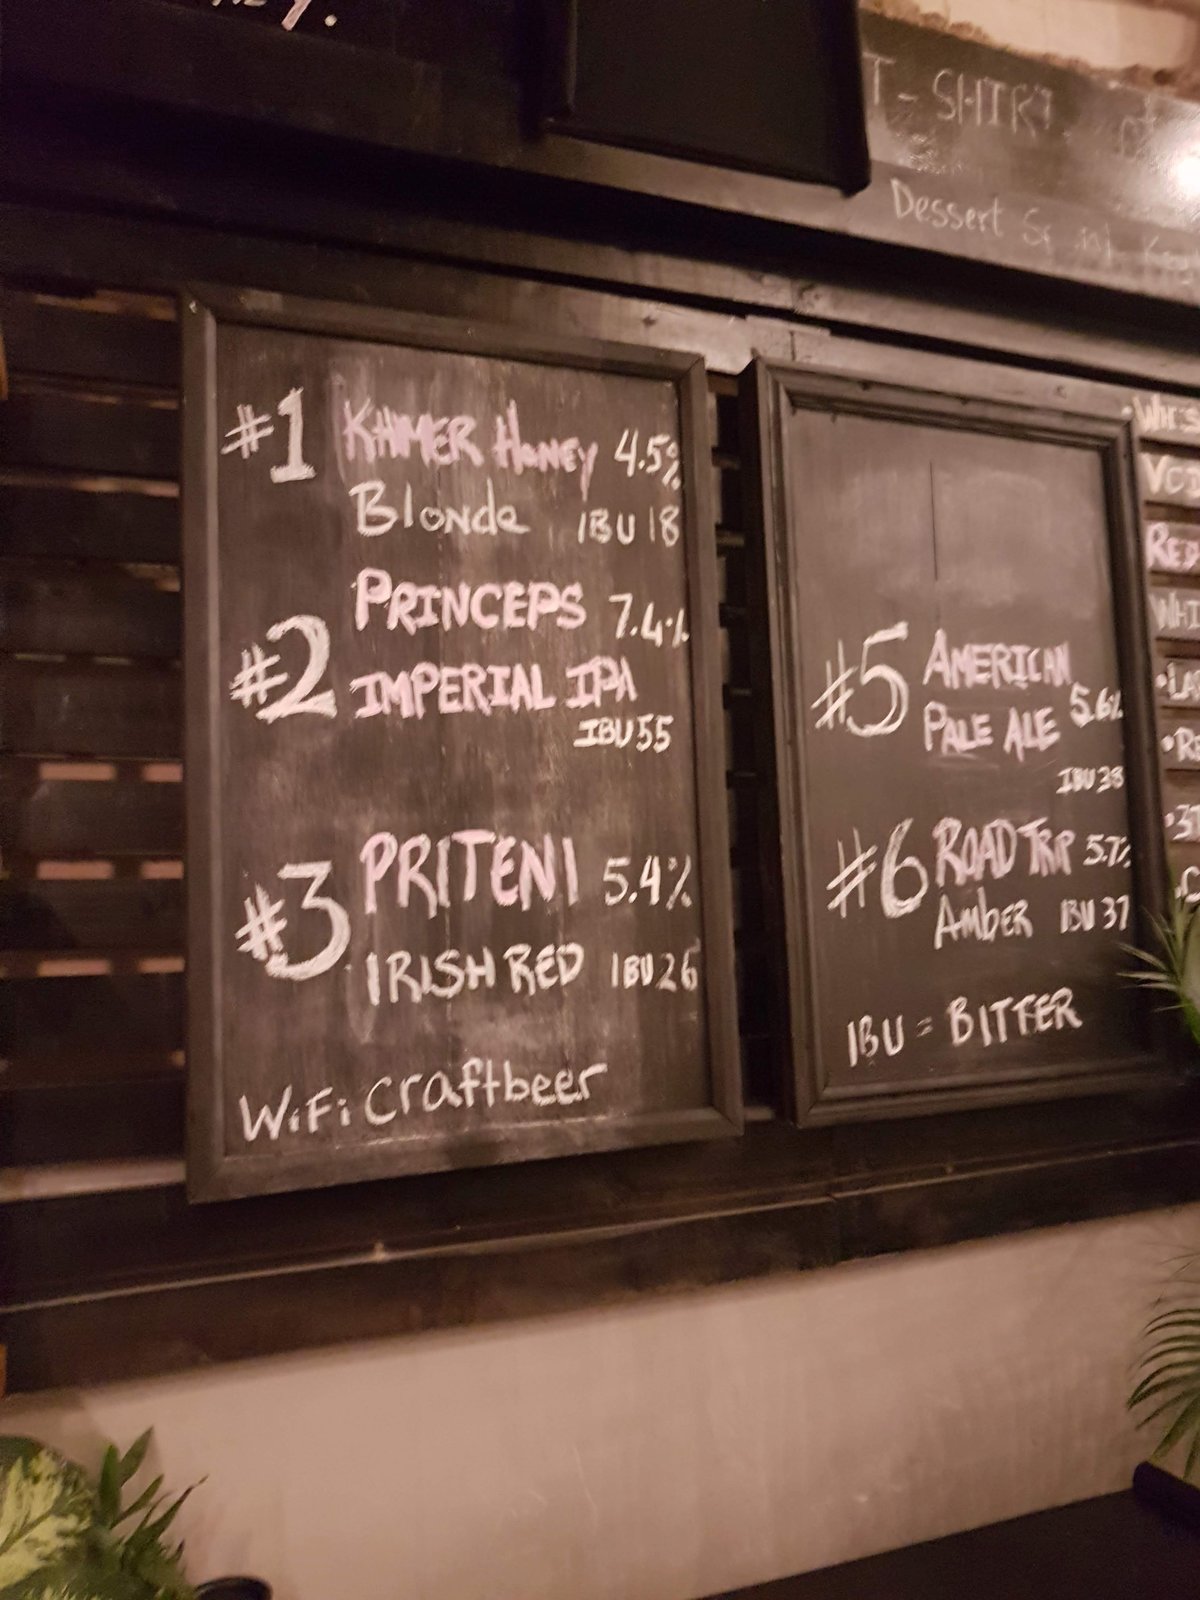 T-SHIRT
Dessert
#1 KHMER Honey 4.5%
Blonde IBU 18
#2 PRINCEPS 7.4%
IMPERIAL IPA
IBU 55
#3 PRITENI 5.4%
IRISH RED IBU 26
WiFi craftbeer
#5 AMERICAN
PALE ALE 5.6%
IBU 38
#6 ROAD TRIP 5.7%
Amber IBU 37
IBU = BITTER